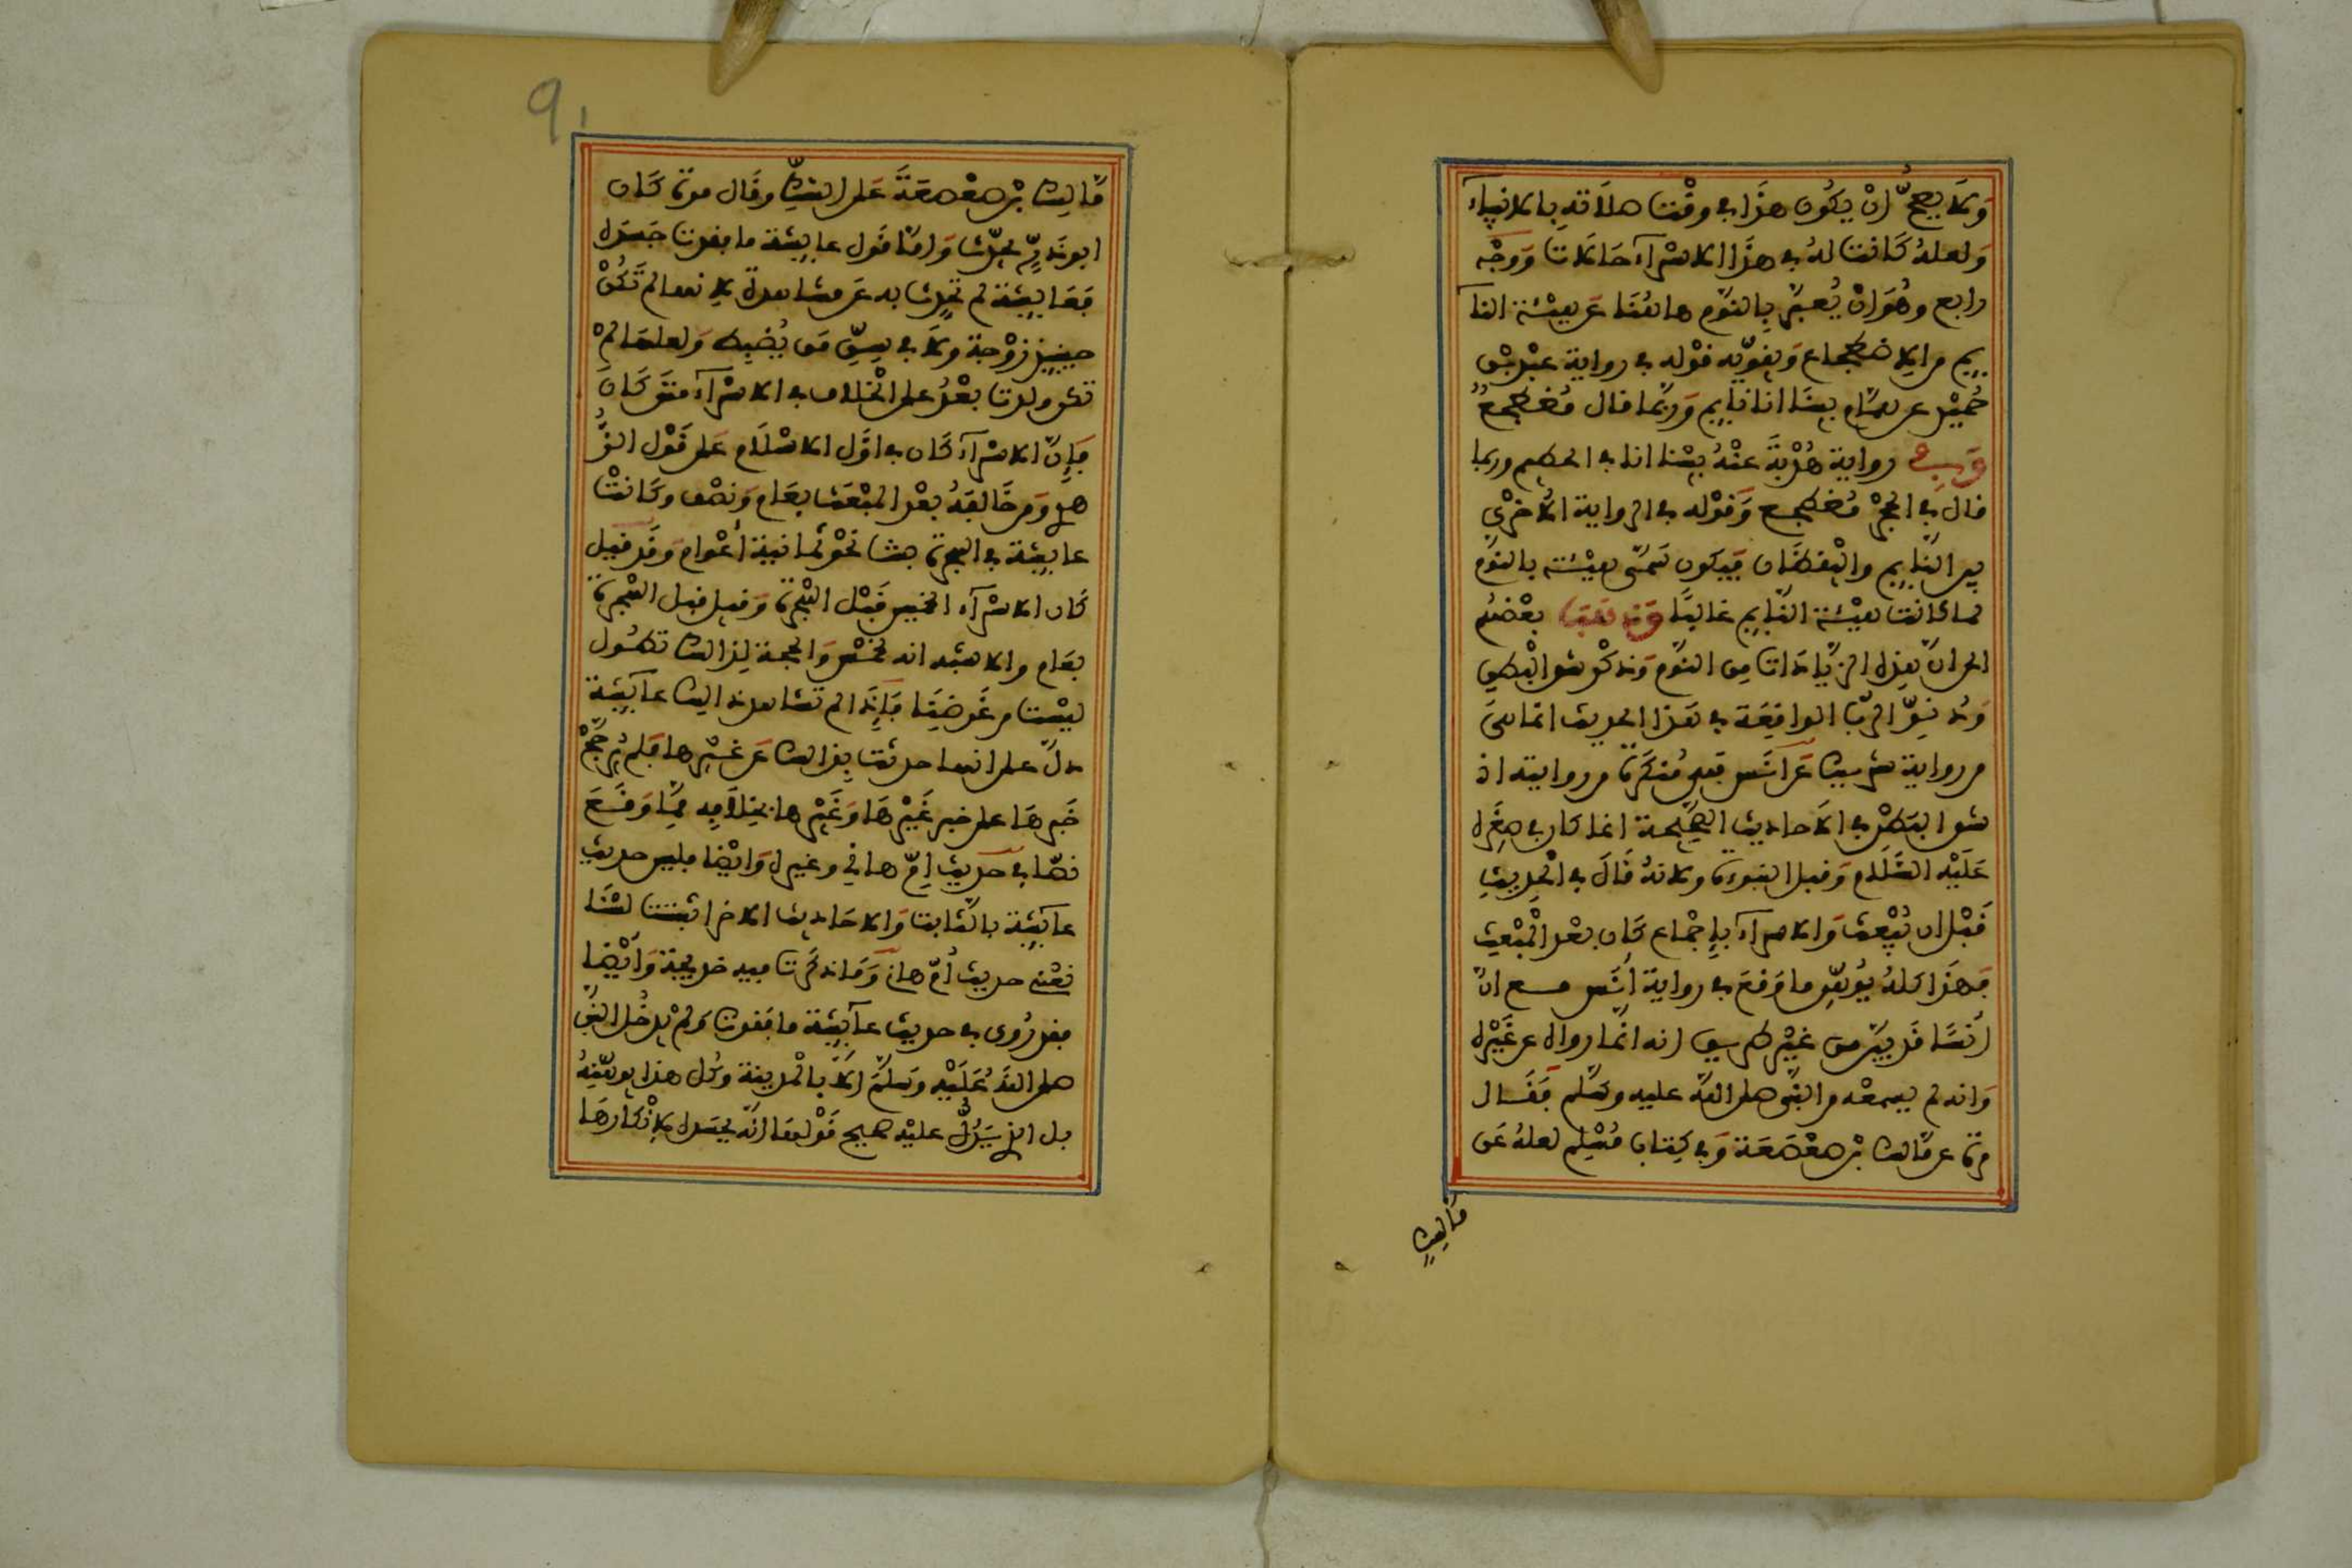 وَلَا يصحُّ ان يكُون هذا في وقْت صلاته بالانبياء
وَلعله كَانت له في هذا الاسْراء حَالات وَوجْه
رابع وهُوَ انْ يُعبَّر بِالنوْم هاهُنَا عَن هيْئة النا
ئم من الاضطجاع وَيقوّيه قوْله في رواية عبْد بْن
حُميْد عن همّام بيْنَا انا نايم وَربَّما قال مُضطجعٌ
وَفي رواية هُدْبَةَ عنْهُ بيْنا انا في الحطيم وربما
قال في الحجْر مُضطجع وَقوْله في الرواية الأخرْى
بين النَّايم واليْقظان فَيكون سَمّى هيْئته بالنوْم
لما كانت هيْئة النَّايم غالبًا وَذهَبَ بعْضهُم
الى انّ هذه الزّيَادَات من النوْم وَذكْر شق البْطن
وَدنوّ الربّ الواقعَة في هَذا الحديث انما هىَ
من رواية شريك عَن انَس فَهى مُنكَرة من روايته اذ
شق البَطْن في الاَحاديث الصَّحيحة انما كان في صغَره
عَلَيْه السَّلَام وَقبل النبوءة ولانهُ قَالَ في الحديث
قَبْل ان يُبْعث وَالاسراء بإجْماع كَان بعْد المبْعث
فَهذَا كلهُ يُوهّن ما وَقعَ في رواية انَس مع انّ
أنسًا قَد بيّن من غيْر طريق انه انّما رواه عن غَيْره
وَانه لم يسمعْه من النبَّى صلى اللَّه عليه وسَلم فَقَال
مرة عن مَّالك بْن صعْصَعَة وَفي كِتاب مُسْلِم لعلهُ عَن
مَالِكٍ
91
مَّالِك بْن صعْصعَةَ عَلى الشكِّ وقَال مرة كَان
ابو ذَرٍّ يحدّث وَامّا قَول عايشة ما فقدت جَسَده
فعَايشة لم تحدث به عَن مشاهدة لانها لم تَكُنْ
حينيذ زوْجة وَلَا في سِنّ مَن يُضبِط وَلعلهَا لمْ
تكن ولدت بعْدُ على الخْلاف في الاسْراء متَى كَانَ
فَإنّ الاسْراء كَان في اوَّل الاسْلَام عَلى قَوْل الزُّ
هرى وَمن خَالفَهُ بعْد المبْعَث بعَام وَنصْف وكَانتْ
عايشة في الهجرة بنت نَحْو ثمانية أعْوام وَقَد قيل
كَان الاسْراء لخمس قَبْل الهجْرة وَقيل قبل الهجْرة
بعَام والاشبه انه لخمْس وَالحجة لِذالك تطُول
ليْست من غَرضِنَا فَإِذَا لم تشاهد ذالك عآيشة
دلّ على انها حدثت بذالك عَن غيْرها فَلم يُرجَّحْ
خَبرهَا على خبر غَيْرهَا وَغَيْرها يقول خلَافه مِمَّا وَقَعَ
نصّا في حَديث امّ هاني وغيره وَايْضا فليس حديث
عآئشة بالثابت وَالاحَاديث الاخر اثبت لسْنَا
نعْني حديث أمّ هاني وَمَا ذكَرَت فيه خديجة وَأيْضا
فقد رُوى في حديث عآيشة ما فقدت وَلمْ يدخُل النبي
صلى اللَّهُ عَلَيْه وَسلمَ الَا بالْمدينة وكل هذا يوهّنهُ
بل الذى يَدُلّ عليْه صحيح قوْلهَا انّه بجَسَده لانْكارهَا